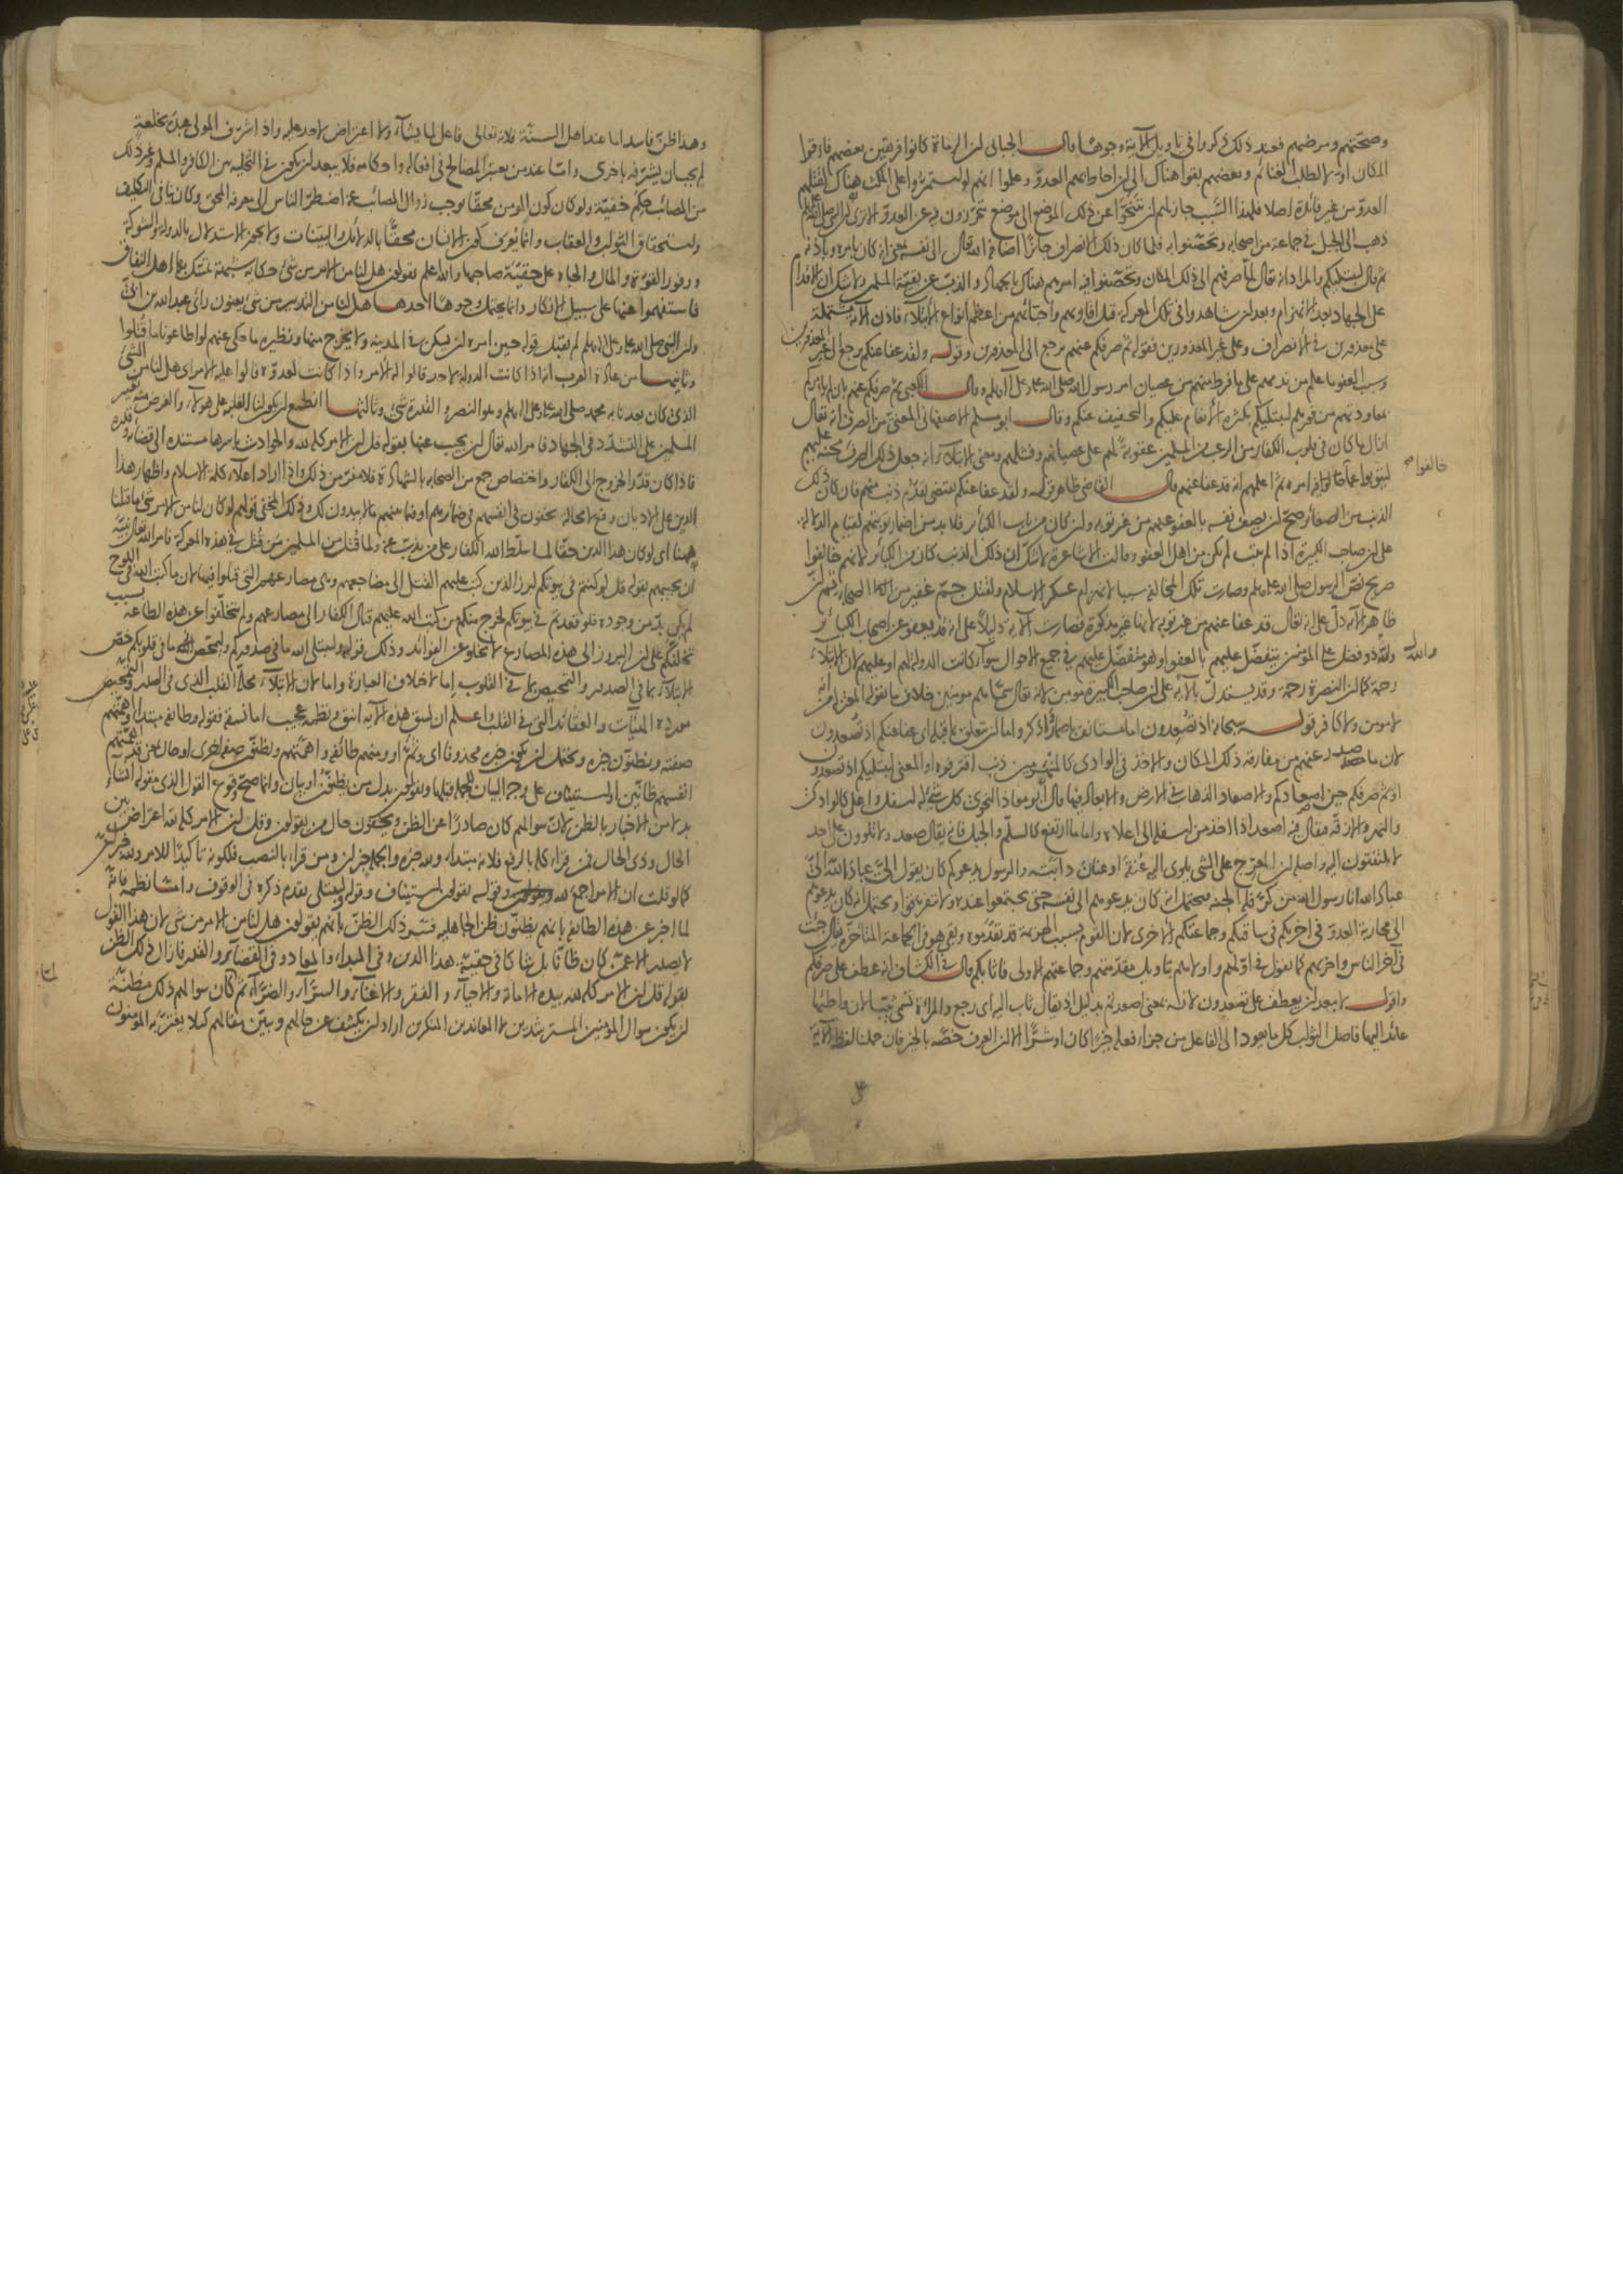 وصحتهم ومرضهم فعند ذلك ذكروا في تاويل الآية وجوها قال الجبائى ان الرماة كانوا فريقين بعضهم فارقوا
المكان اولا لطلب الغنائم وبعضهم بقوا هناك الى ان احاط بهم العدو وعلموا انهم لو استمروا على المكث هناك لقتلهم
العدو من غير فائدة اصلا فلهذا السبب جاز لهم ان يتنحوا عن ذلك الموضع الى موضع يتحرزون فيه عن العدو الا ترى ان النبى صلى الله عليه
ذهب الى الجبل في جماعة من اصحابه وتحصنوا به فلما كان ذلك الانصراف جائزا اضافه الله تعالى الى نفسه بمعنى انه كان بامره وباذنه
ثم قال ليبتليكم والمراد انه تعالى لما صرفهم الى ذلك المكان وتحصنوا فيه امرهم هناك بالجهاد والذب عن بقية المسلمين ولا شك ان الاقدام
على الجهاد بعد الانهزام وبعد ان شاهدوا في تلك المعركة قتل اقاربهم واحبائهم من اعظم انواع الابتلاء فاذن الآية مشتملة
على معذورين في الانصراف وعلى غير المعذورين فقوله ثم صرفكم عنهم يرجع الى المعذورين وقوله ولقد عفا عنكم يرجع الى غير المعذورين
وسبب العفو ما علم من ندمهم على ما فرط منهم من عصيان امر رسول الله صلى الله عليه وعلى آله وسلم وقال الكعبى ثم صرفكم عنهم بان لم يامركم
بمعاودتهم من فورهم ليبتليكم بكثرة الانعام عليكم والتخفيف عنكم وقال ابو مسلم الاصفهانى المعنى من الصرف انه تعالى
ازال ما كان في قلوب الكفار من الرعب من المسلمين عقوبة لهم على عصيانهم وفشلهم ومعنى الابتلاء انه جعل ذلك الصرف محنة عليهم
ليتوبوا عما خالفوا فيه امره ثم اعلمهم انه قد عفا عنهم قال القاضى ظاهر قوله ولقد عفا عنكم يقتضى تقدم ذنب منهم فان كان ذلك
خالفوا
الذنب من الصغائر صح ان يصف نفسه بالعفو عنهم من غير توبة وان كان من باب الكبائر فلا بد من اضمار توبتهم لقيام الدلالة
على ان صاحب الكبيرة اذا لم يتب لم يكن من اهل العفو وقالت الاشاعرة لا شك ان ذلك الذنب كان من الكبائر لانهم خالفوا
صريح نص الرسول صلى الله عليه وسلم وصارت تلك المخالفة سببا لانهزام عسكر الاسلام ولقتل جم غفير من اكابر الصحابة ثم ان
ظاهر الآية دل على انه تعالى قد عفا عنهم من غير توبة لانها غير مذكورة فصارت الآية دليلا على انه قد يعفو عن اصحاب الكبائر
والله
والله ذو فضل على المؤمنين يتفضل عليهم بالعفو او هو متفضل عليهم في جميع الاحوال سواء كانت الدولة لهم او عليهم لان الابتلاء
رحمة كما ان النصرة رحمة وقد يستدل بالآية على ان صاحب الكبيرة مؤمن لانه تعالى سماهم مؤمنين خلاف ما يقوله المعتزلة من انه
لا مومن ولا كافر قوله سبحانه اذ تصعدون اما مستانف باضمار اذكر واما ان يتعلق بما قبله اى عفا عنكم اذ تصعدون
لان ما صدر عنهم من مفارقة ذلك المكان والاخذ في الوادى كالمنهزمين ذنب اقترفوه او المعنى ليبتليكم اذ تصعدون
او ثم صرفكم حين اصعادكم والاصعاد الذهاب في الارض والابعاد فيها قال ابو معاذ النحوى كل شئ له اسفل واعلى كالوادى
والنهر والازقة فيقال فيه اصعد اذا اخذ من اسفله الى اعلاه واما ما ارتفع كالسلم والجبل فانه يقال صعد ولا تلوون على احد
لا تلتفتون اليه واصله ان المعرج على الشئ يلوى اليه عنقه او عنان دابته والرسول يدعوكم كان يقول الى عباد الله الى
عباد الله انا رسول الله من كر فله الجنة فيحتمل انه كان يدعوهم الى نفسه حتى يجتمعوا عنده ولا تفرقوا ويحتمل انه كان يدعوهم
الى محاربة العدو في اخراكم في ساقتكم وجماعتكم الاخرى لان القوم بسبب الهزيمة قد تقدموه وبقى هو في الجماعة المتاخرة يقال جئت
في آخر الناس واخريهم كما يقول في اولهم واولاهم بتاويل مقدمتهم وجماعتهم الاولى فاثابكم قال في الكشاف انه عطف على صرفكم
واقول لا يبعد ان يعطف على تصعدون لانه بمعنى اصعدتم بدليل اذ يقال ثاب اليه اى رجع والمراة تسمى ثيبا لان واطئها
عائد اليها فاصل الثواب كل ما يعود الى الفاعل من جزاء فعله خيرا كان او شرا الا ان العرف خصه بالخير فان حملنا لفظ الآية
وهذا ظن فاسد اما عند اهل السنة فلانه تعالى فاعل لما يشاء ولا اعتراض لاحد عليه واذا شرف المولى عبده بخلعة
لم يجب ان يشرفه باخرى واما عند من يعتبر المصالح في افعاله واحكامه فلا يبعد ان يكون في التخلية بين الكافر والمسلم وغير ذلك
من المصائب حكم خفية ولو كان كون المومن محقا يوجب زوال المصائب عنه اضطر الناس الى معرفة المحق وكان ينافى التكليف
واستحقاق الثواب والعقاب وانما يعرف كون الانسان محقا بالدلائل والبينات ولا يجوز الاستدلال بالدولة والشوكة
ووفور القوة والمال والجاه على حقية صاحبها والله اعلم يقولون هل لنا من الامر من شئ حكاية شبهة تمسك بها اهل النفاق
فاستفهموا عنها على سبيل الانكار وانها يحتمل وجوها احدها هل لنا من التدبير من شئ يعنون راى عبد الله بن ابى
وان النبى صلى الله عليه وعلى آله وسلم لم يقبل قوله حين امره ان يسكن في المدينة ولا يخرج منها ونظيره ما حكى عنهم لو اطاعونا ما قتلوا
وثانيها من عادة العرب انه اذا كانت الدولة لاحد قالوا له الامر واذا كانت لعدوه قالوا عليه الامر اى هل لنا من الشئ
الذى كان يعدنا به محمد صلى الله عليه وعلى آله وسلم وهو النصر والقدرة شئ وثالثها انطمع ان يكون لنا الغلبة على هولاء والغرض منه تعيير
المسلمين على التشدد في الجهاد فامر الله تعالى ان يجيب عنها بقوله قل ان الامر كله لله والحوادث باسرها مستندة الى قضائه وقدره
فاذا كان قدر الخروج الى الكفار واختصاص جمع من الصحابة بالشهادة فلا مفر من ذلك واذا اراد اعلاء كلمة الاسلام واظهار هذا
الدين على الاديان وقع لا محالة يخفون في انفسهم في ضمائرهم او فيما بينهم ما لا يبدون لك وذلك المخفى قولهم لو كان لنا من الامر شئ ما قتلنا
ههنا اى لو كان هذا الدين حقا لما سلط الله الكفار على من يذب عنه ولما قتل من المسلمين من قتل في هذه المعركة فامر الله تعالى نبيه
ان يجيبهم بقوله قل لو كنتم في بيوتكم لبرز الذين كتب عليهم القتل الى مضاجعهم وهى مصارعهم التى قتلوا فيها لان ما كتب الله في اللوح
لم يكن بد من وجوده فلو قعدتم في بيوتكم لخرج منكم من كتب الله عليهم قتال الكفار الى مصارعهم ولم يتخلفوا عن هذه الطاعة بسبب
تخلفكم على ان البروز الى هذه المصارع لا يخلو عن الفوائد وذلك قوله وليبتلى الله ما في صدوركم وليمحص ما في قلوبكم خص
الابتلاء بما في الصدور والتمحيص بما في القلوب اما لاختلاف العبارة واما لان الابتلاء محله القلب الذى في الصدر والتمحيص
مورده النيات والعقائد التى في القلب واعلم ان نسق هذه الآية انيق ونظمه عجيب اما نسقه فقوله وطائفة مبتدا اهمتهم
صفته ويظنون خبره ويحتمل ان يكون خبره محذوفا اى وثم او ومنهم طائفة واهمتهم ويظنون صفة اخرى او حال بمعنى قد اهمتهم
انفسهم ظانين او استيناف على وجه البيان للجملة قبلها ويقولون بدل من يظنون او بيان وانما صح وقوع القول الذى مقوله انشاء
بدلا من الاخبار بالظن لان سوالهم كان صادرا عن الظن ويخفون حال من يقولون وقل ان الامر كله لله اعتراض بين
الحال وذى الحال فمن قراء كله بالرفع فلانه مبتداء ولله خبره والجملة خبر ان ومن قراء بالنصب فلكونه تاكيدا للامر ولله خبر ان
كما لو قلت ان الامر اجمع لله وقوله يقولون استيناف وقوله ليبتلى تقدم ذكره في الوقوف واما نظمه فانه
لما اخبر عن هذه الطائفة بانهم يظنون ظن الجاهلية فسر ذلك الظن بانهم يقولون هل لنا من الامر من شئ لان هذا القول
لا يصدر الا عمن كان ظانا بل شاكا في حقية هذا الدين وفى المبداء والمعاد وفى القضاء والقدر فازال ذلك الظن
بقوله قل ان الامر كله لله بيده الاماتة والاحياء والفقر والاغناء والسراء والضراء ثم كان سوالهم ذلك مظنة
ان يكون سوال المؤمنين المسترشدين لا المعاندين المنكرين اراد ان يكشف عن حالهم ويبين مقالهم كيلا يغتر به المؤمنون